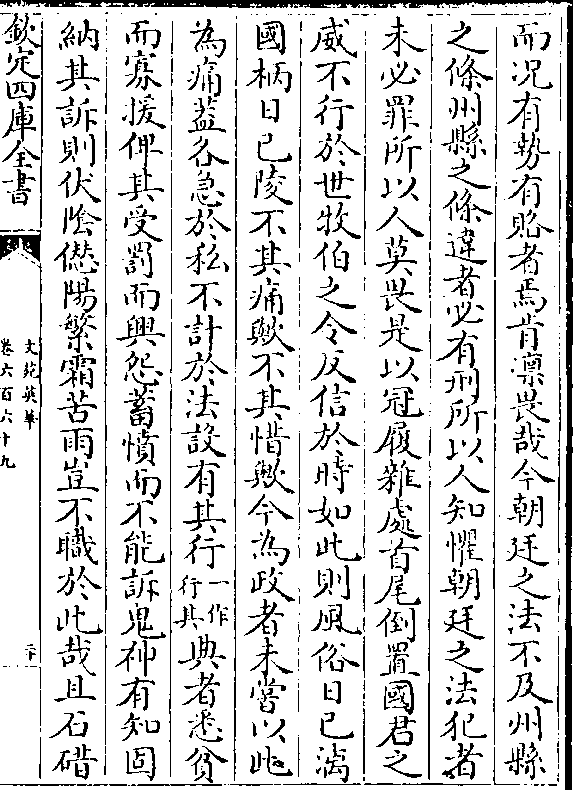 而况有勢有賂者焉肯凛畏哉今朝廷之法不及州縣
之條州縣之條違者必有刑所以人知懼朝廷之法犯者
未必罪所以人莫畏是以冠履雜處首尾倒置國君之
威不行於世牧伯之令反信於時如此則風俗日已漓
國柄日已陵不其痛歟不其惜歟今為政者未嘗以此
為痛蓋各急於私不計於法設有其行一作行其典者悉貧
而寡援俾其受罰而興怨蓄憤而不能訴鬼神有知固
納其訴則伏陰僽陽繁霜苦雨豈不職於此哉且石碏
欽定四庫全書
文苑英華
卷六百六十九
二十